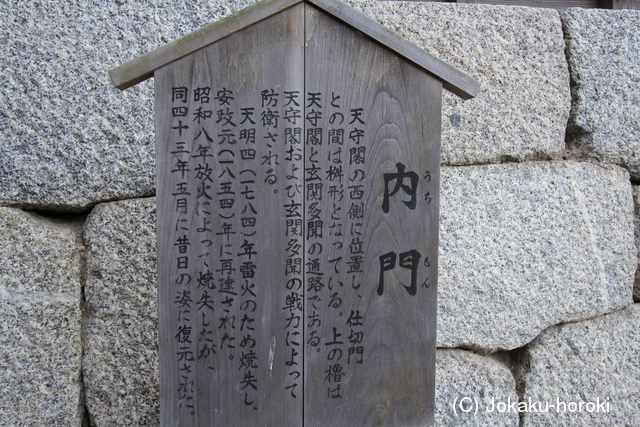 内門
うちもん
天守閣の西側に位置し、仕切門
との間は桝形となっている。上の櫓は
天守閣と玄関多聞の通路である。
天守閣および玄関多聞の戦力によって
防衛される。
天明四(一七八四)年雷火のため焼失し、
安政元(一八五四)年に再建された。
昭和八年放火によって焼失したが、
同四十三年五月に昔日の姿に復元された。
(C) Jokaku-horoki